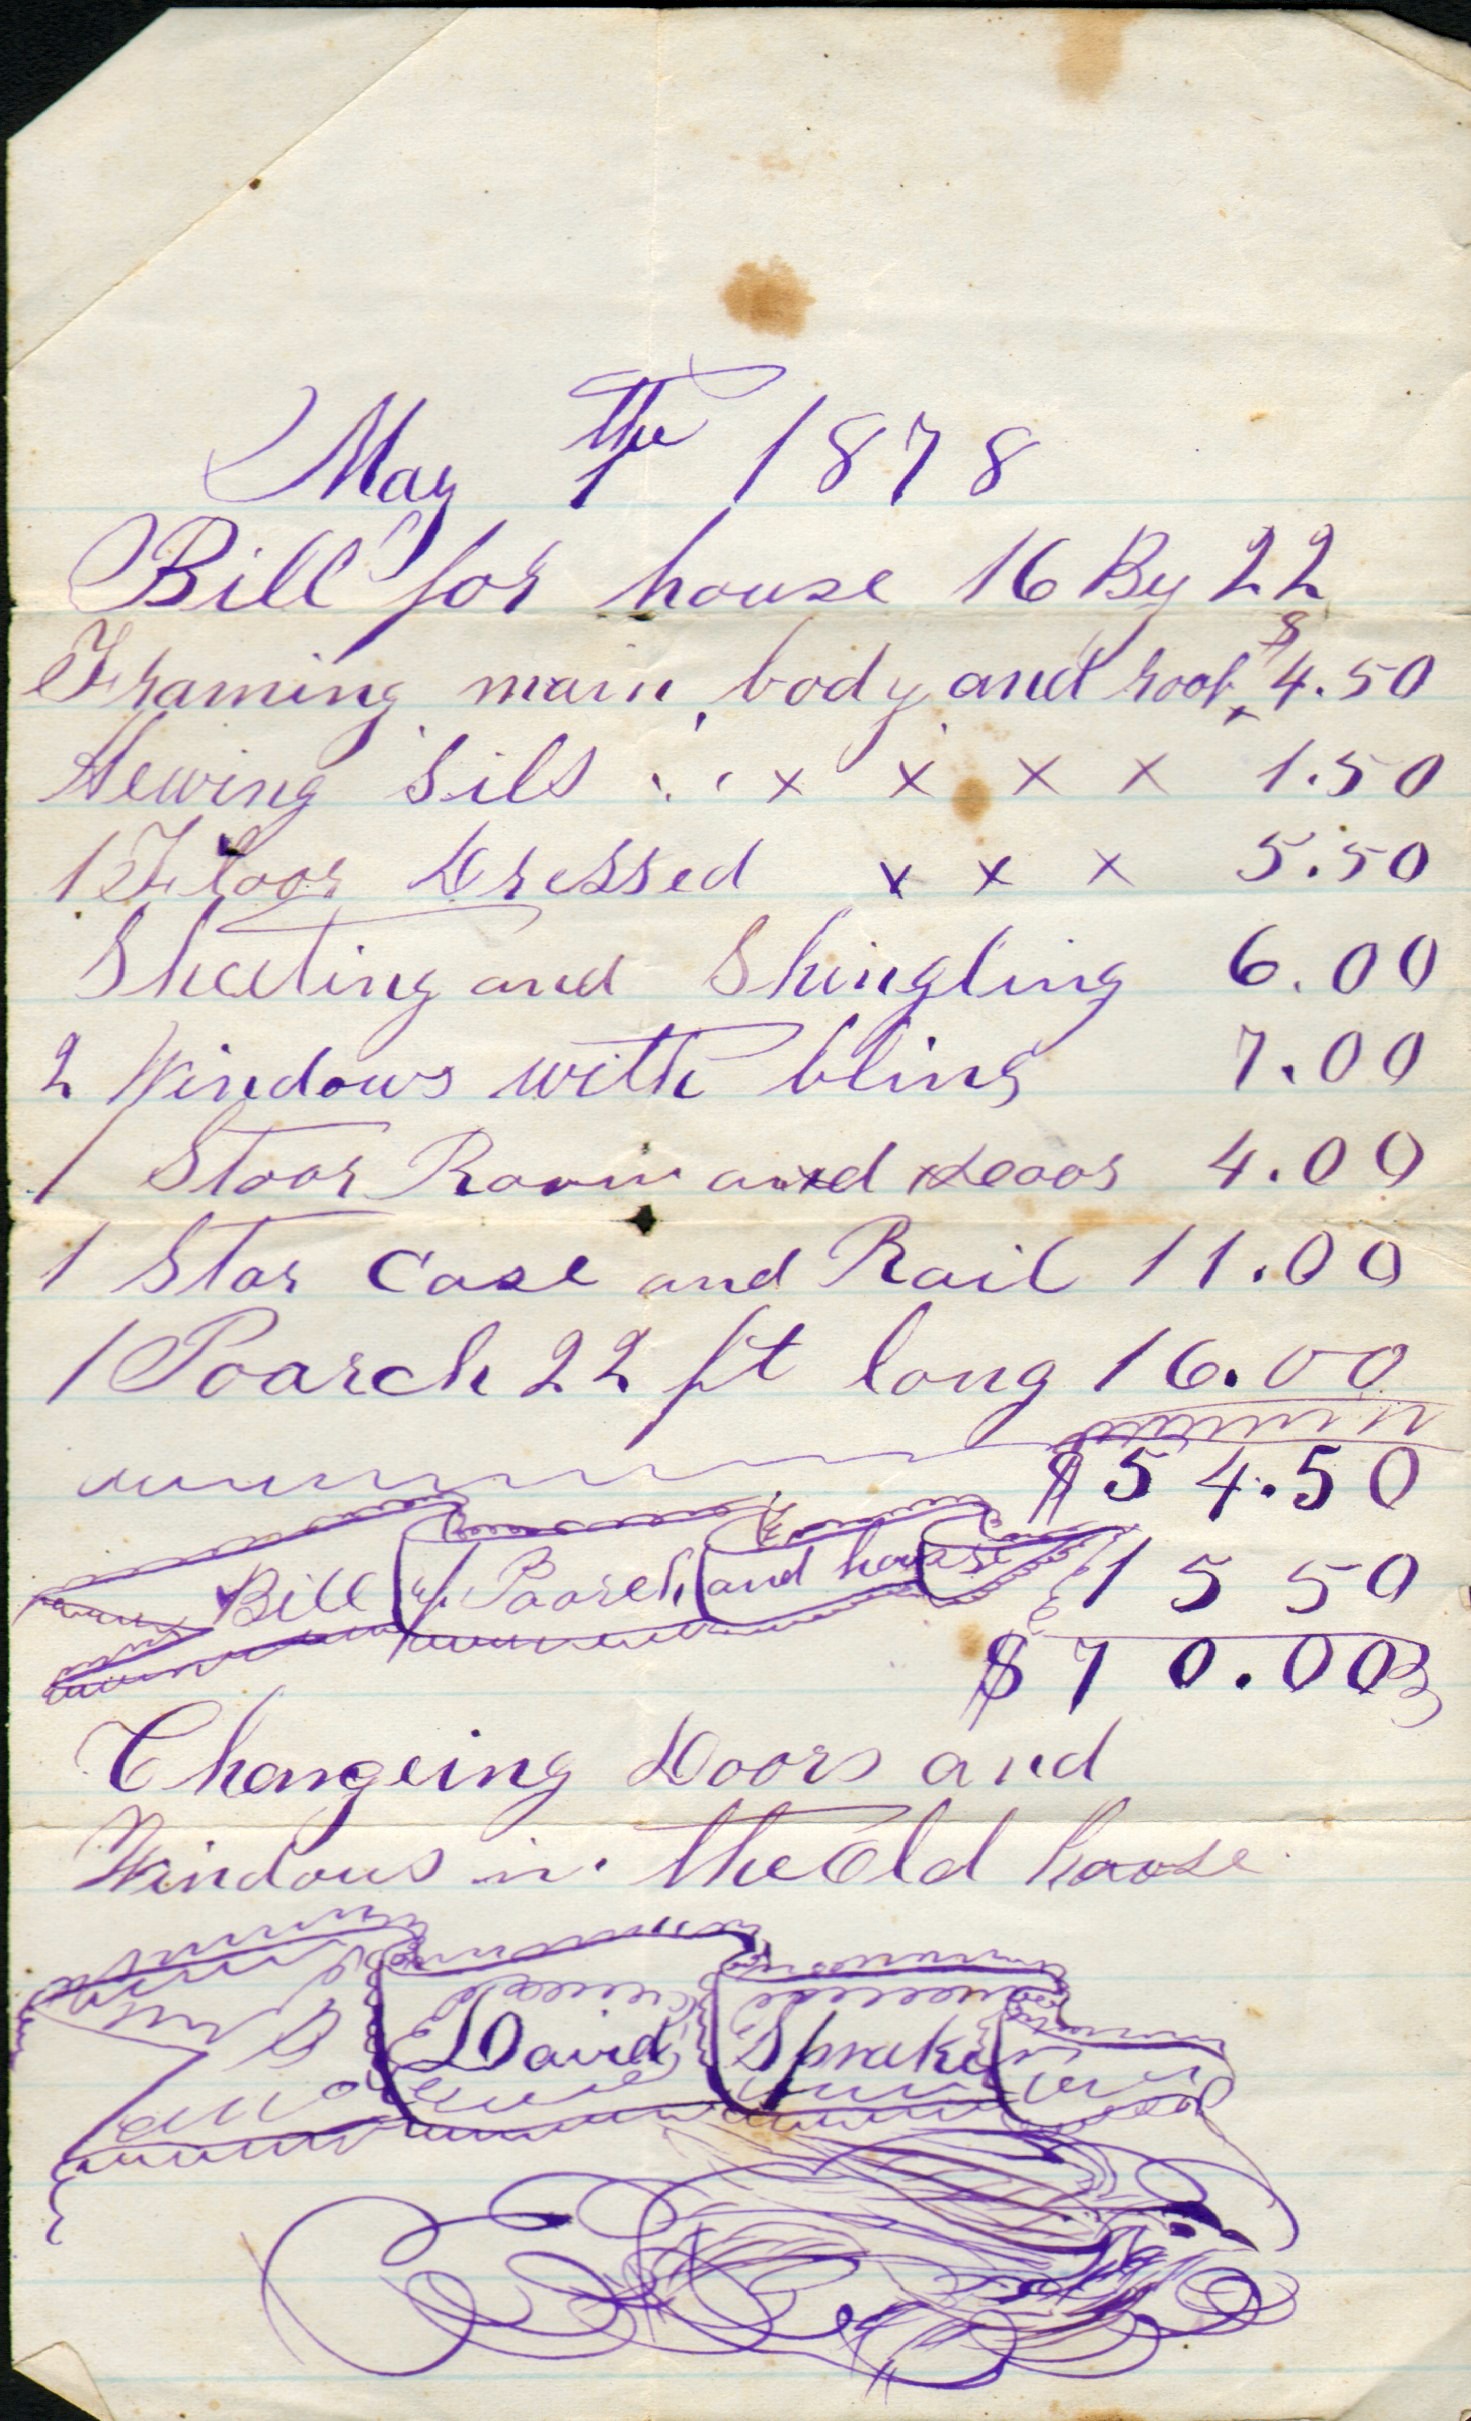 May the 1 1878
Bill for house 16 By 22
Framing main body and roof $4.50
Hewing Sils x x x x 1.50
1 Floor Dressed x x x 5.50
Sheeting and Shingling 6.00
2 Windows with bling 7.00
1 Stoor Room and doors 4.00
1 Star Case and Rail 11.00
1 Poarch 22 ft long 16.00
$54.50
Bill of Poarch and house 15 50
$70.00
Changeing Doors and
Windows in the Old house
David Sprake